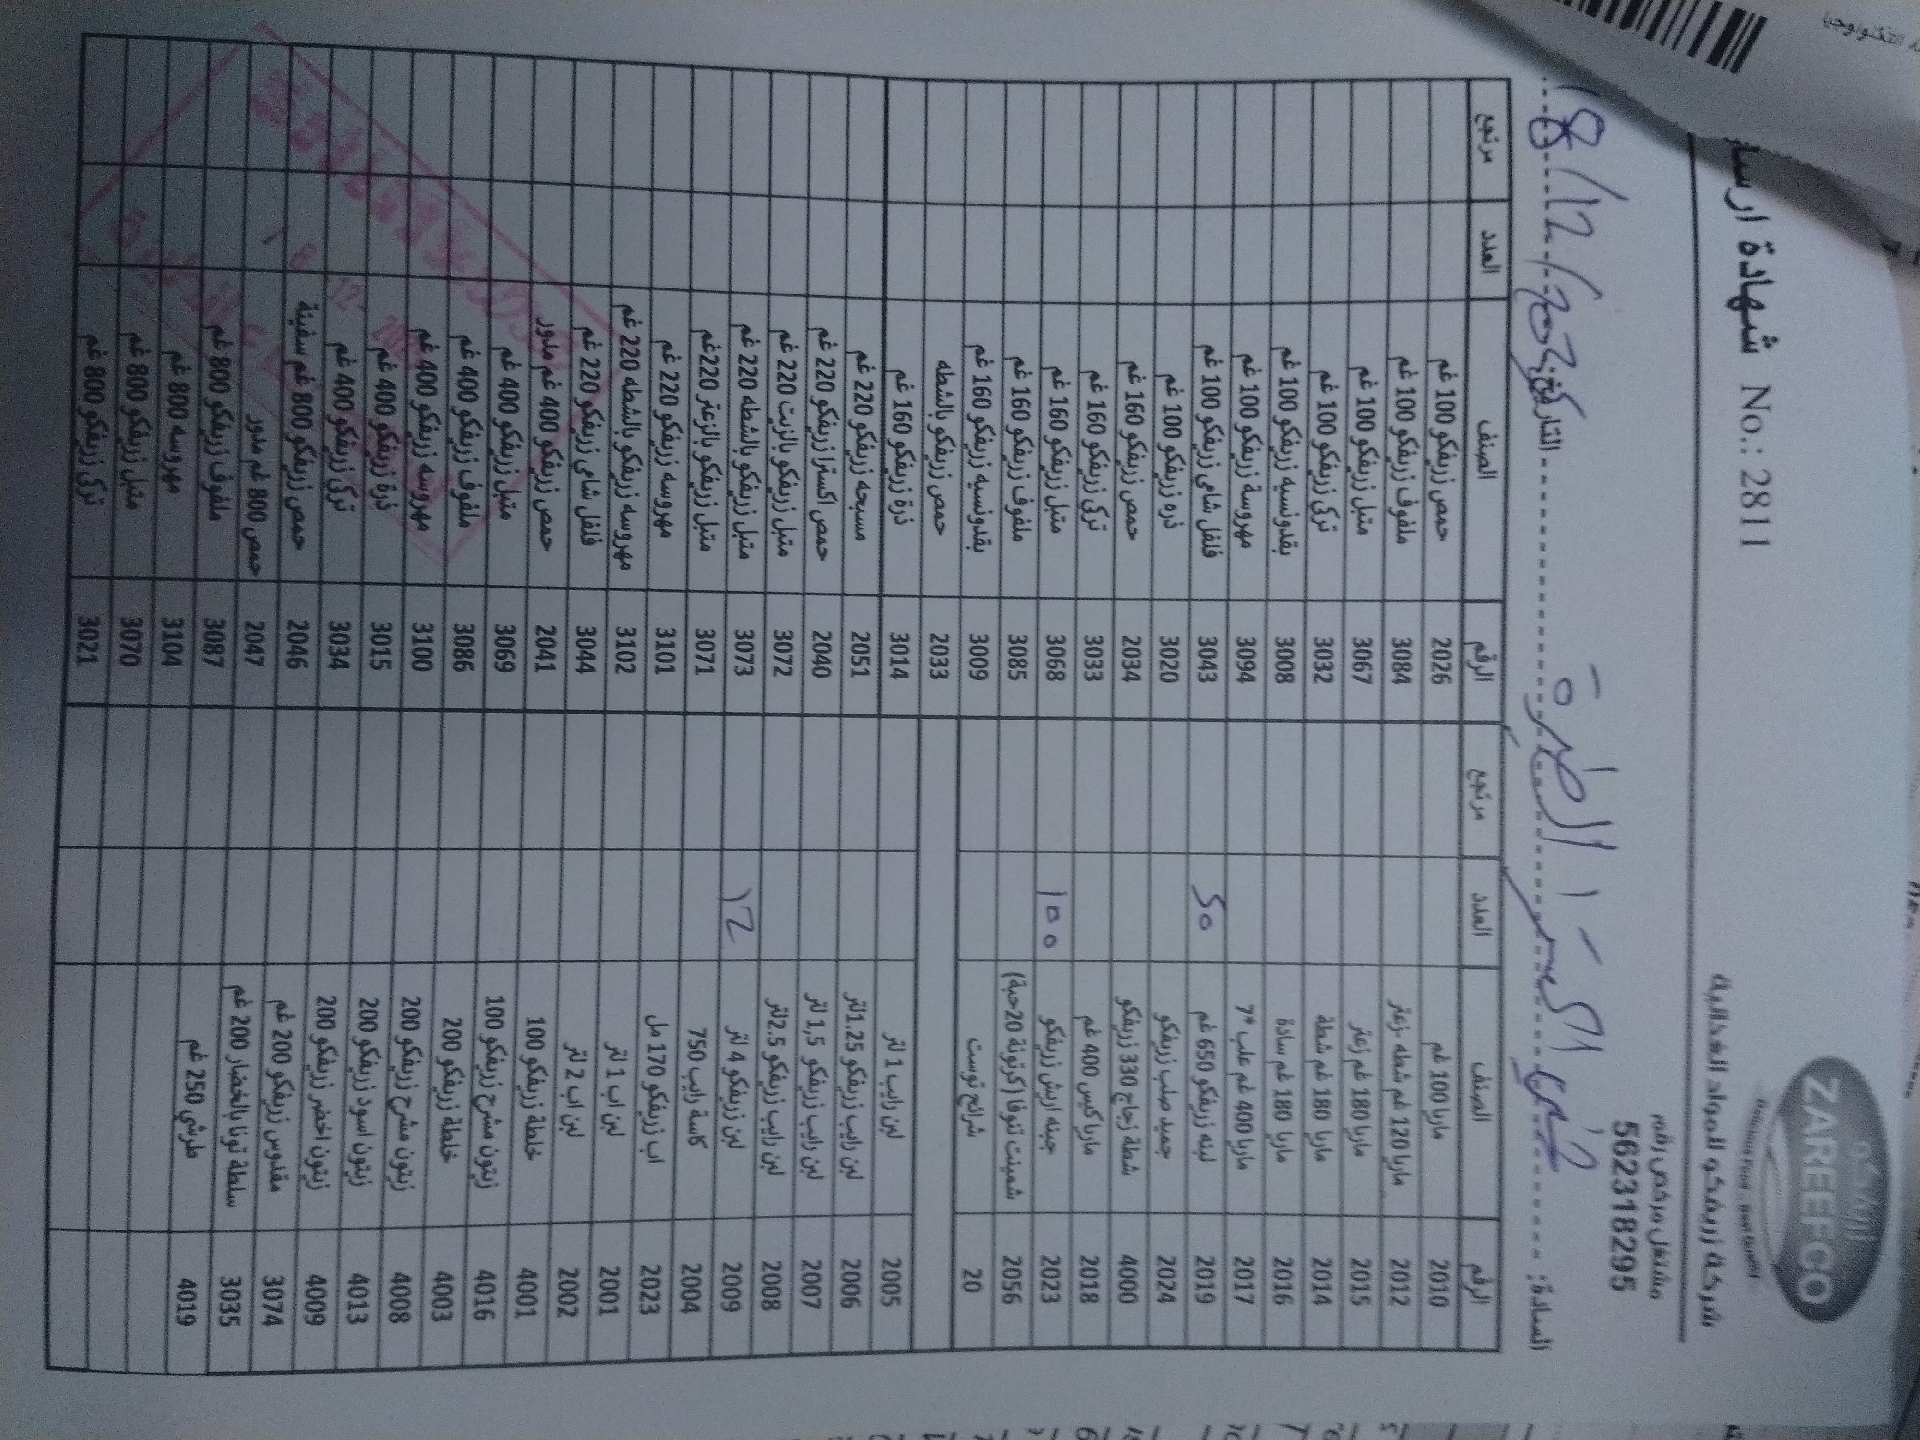 زريفكو
ZAREEFCO
شركة زريفكو للمواد الغذائية
مشتغل مرخص رقم
562318295
شهادة ارسا
No.: 2811
السادة:
التاريخ:
الرقم الصنف العدد مرتجع الرقم الصنف العدد مرتجع
2010 ماربا 100 غم 2026 حمص زريفكو 100 غم
2012 ماربا 120 غم شطه .زعتر 3084 ملفوف زريفكو 100 غم
2015 ماربا 180 غم زعتر 3067 متبل زريفكو 100 غم
2014 ماربا 180 غم شطة 3032 تركي زريفكو 100 غم
2016 ماربا 180 غم سادة 3008 بقدونسيه زريفكو 100 غم
2017 ماربا 400 غم علب *7 3094 مهروسة زريفكو 100 غم
2019 لبنه زريفكو 650 غم ٥٠ 3043 فلفل شامي زريفكو 100 غم
2024 جميد صلب زريفكو 3020 ذره زريفكو 100 غم
4000 شطة زجاج 330 زريفكو 2034 حمص زريفكو 160 غم
2018 ماربا كيس 400 غم 3033 تركي زريفكو 160 غم
2023 جبنه اريش زريفكو ١٠٠ 3068 متبل زريفكو 160 غم
2056 شمينت تنوفا (كرتونة 20حبة) 3085 ملفوف زريفكو 160 غم
20 شرائح توست 3009 بقدونسيه زريفكو 160 غم
2033 حمص زريفكو بالشطه
2005 لبن رايب 1 لتر 3014 ذرة زريفكو 160 غم
2006 لبن رايب زريفكو 1.25لتر 2051 مسبحه زريفكو 220 غم
2007 لبن رايب زريفكو 1,5 لتر 2040 حمص اكسترا زريفكو 220 غم
2008 لبن رايب زريفكو 2.5لتر 3072 متبل زريفكو بالزيت 220 غم
2009 لبن زريفكو 4 لتر ١٢ 3073 متبل زريفكو بالشطه 220 غم
2004 كاسة رايب 750 3071 متبل زريفكو بالزعتر 220غم
2023 اب زريفكو 170 مل 3101 مهروسه زريفكو 220 غم
2001 لبن اب 1 لتر 3102 مهروسه زريفكو بالشطه 220 غم
2002 لبن اب 2 لتر 3044 فلفل شامي زريفكو 220 غم
4001 خلطة زريفكو 100 2041 حمص زريفكو 400 غم مدور
4016 زيتون مشرح زريفكو 100 3069 متبل زريفكو 400 غم
4003 خلطة زريفكو 200 3086 ملفوف زريفكو 400 غم
4008 زيتون مشرح زريفكو 200 3100 مهروسه زريفكو 400 غم
4013 زيتون اسود زريفكو 200 3015 ذرة زريفكو 400 غم
4009 زيتون اخضر زريفكو 200 3034 تركي زريفكو 400 غم
3074 مقدوس زريفكو 200 غم 2046 حمص زريفكو 800 غم سفينة
3035 سلطة تونا بالخضار 200 غم 2047 حمص 800 غم مدور
4019 طرشي 250 غم 3087 ملفوف زريفكو 800 غم
3104 مهروسه 800 غم
3070 متبل زريفكو 800 غم
3021 تركي زريفكو 800 غم